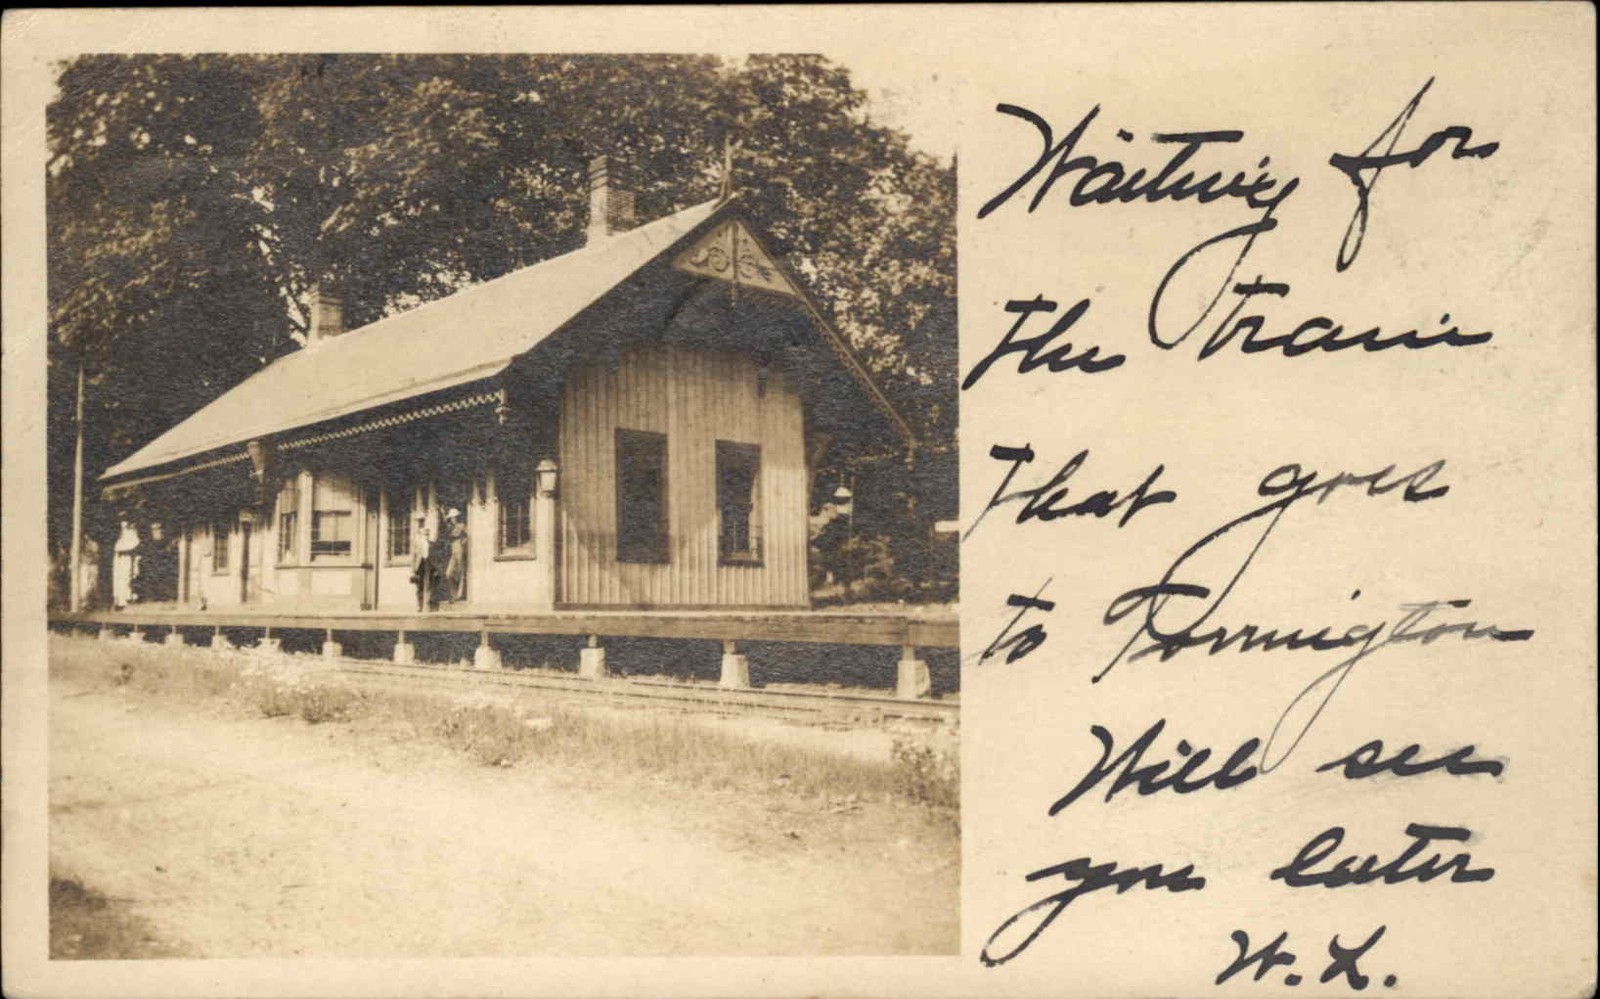 Waiting for
the train
that goes
to Torrington
Will see
you later
W. L.